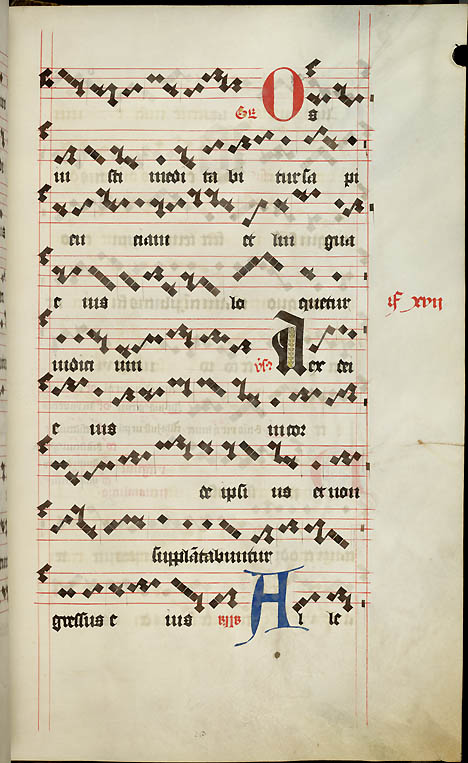 Os
iu sti medi ta bi tur sa pi
en ciam et lin gua
e ius lo quetur
iudici um Lex dei
e ius in cor
de ipsi us et non
supplātabuntur
gressus e ius Al le